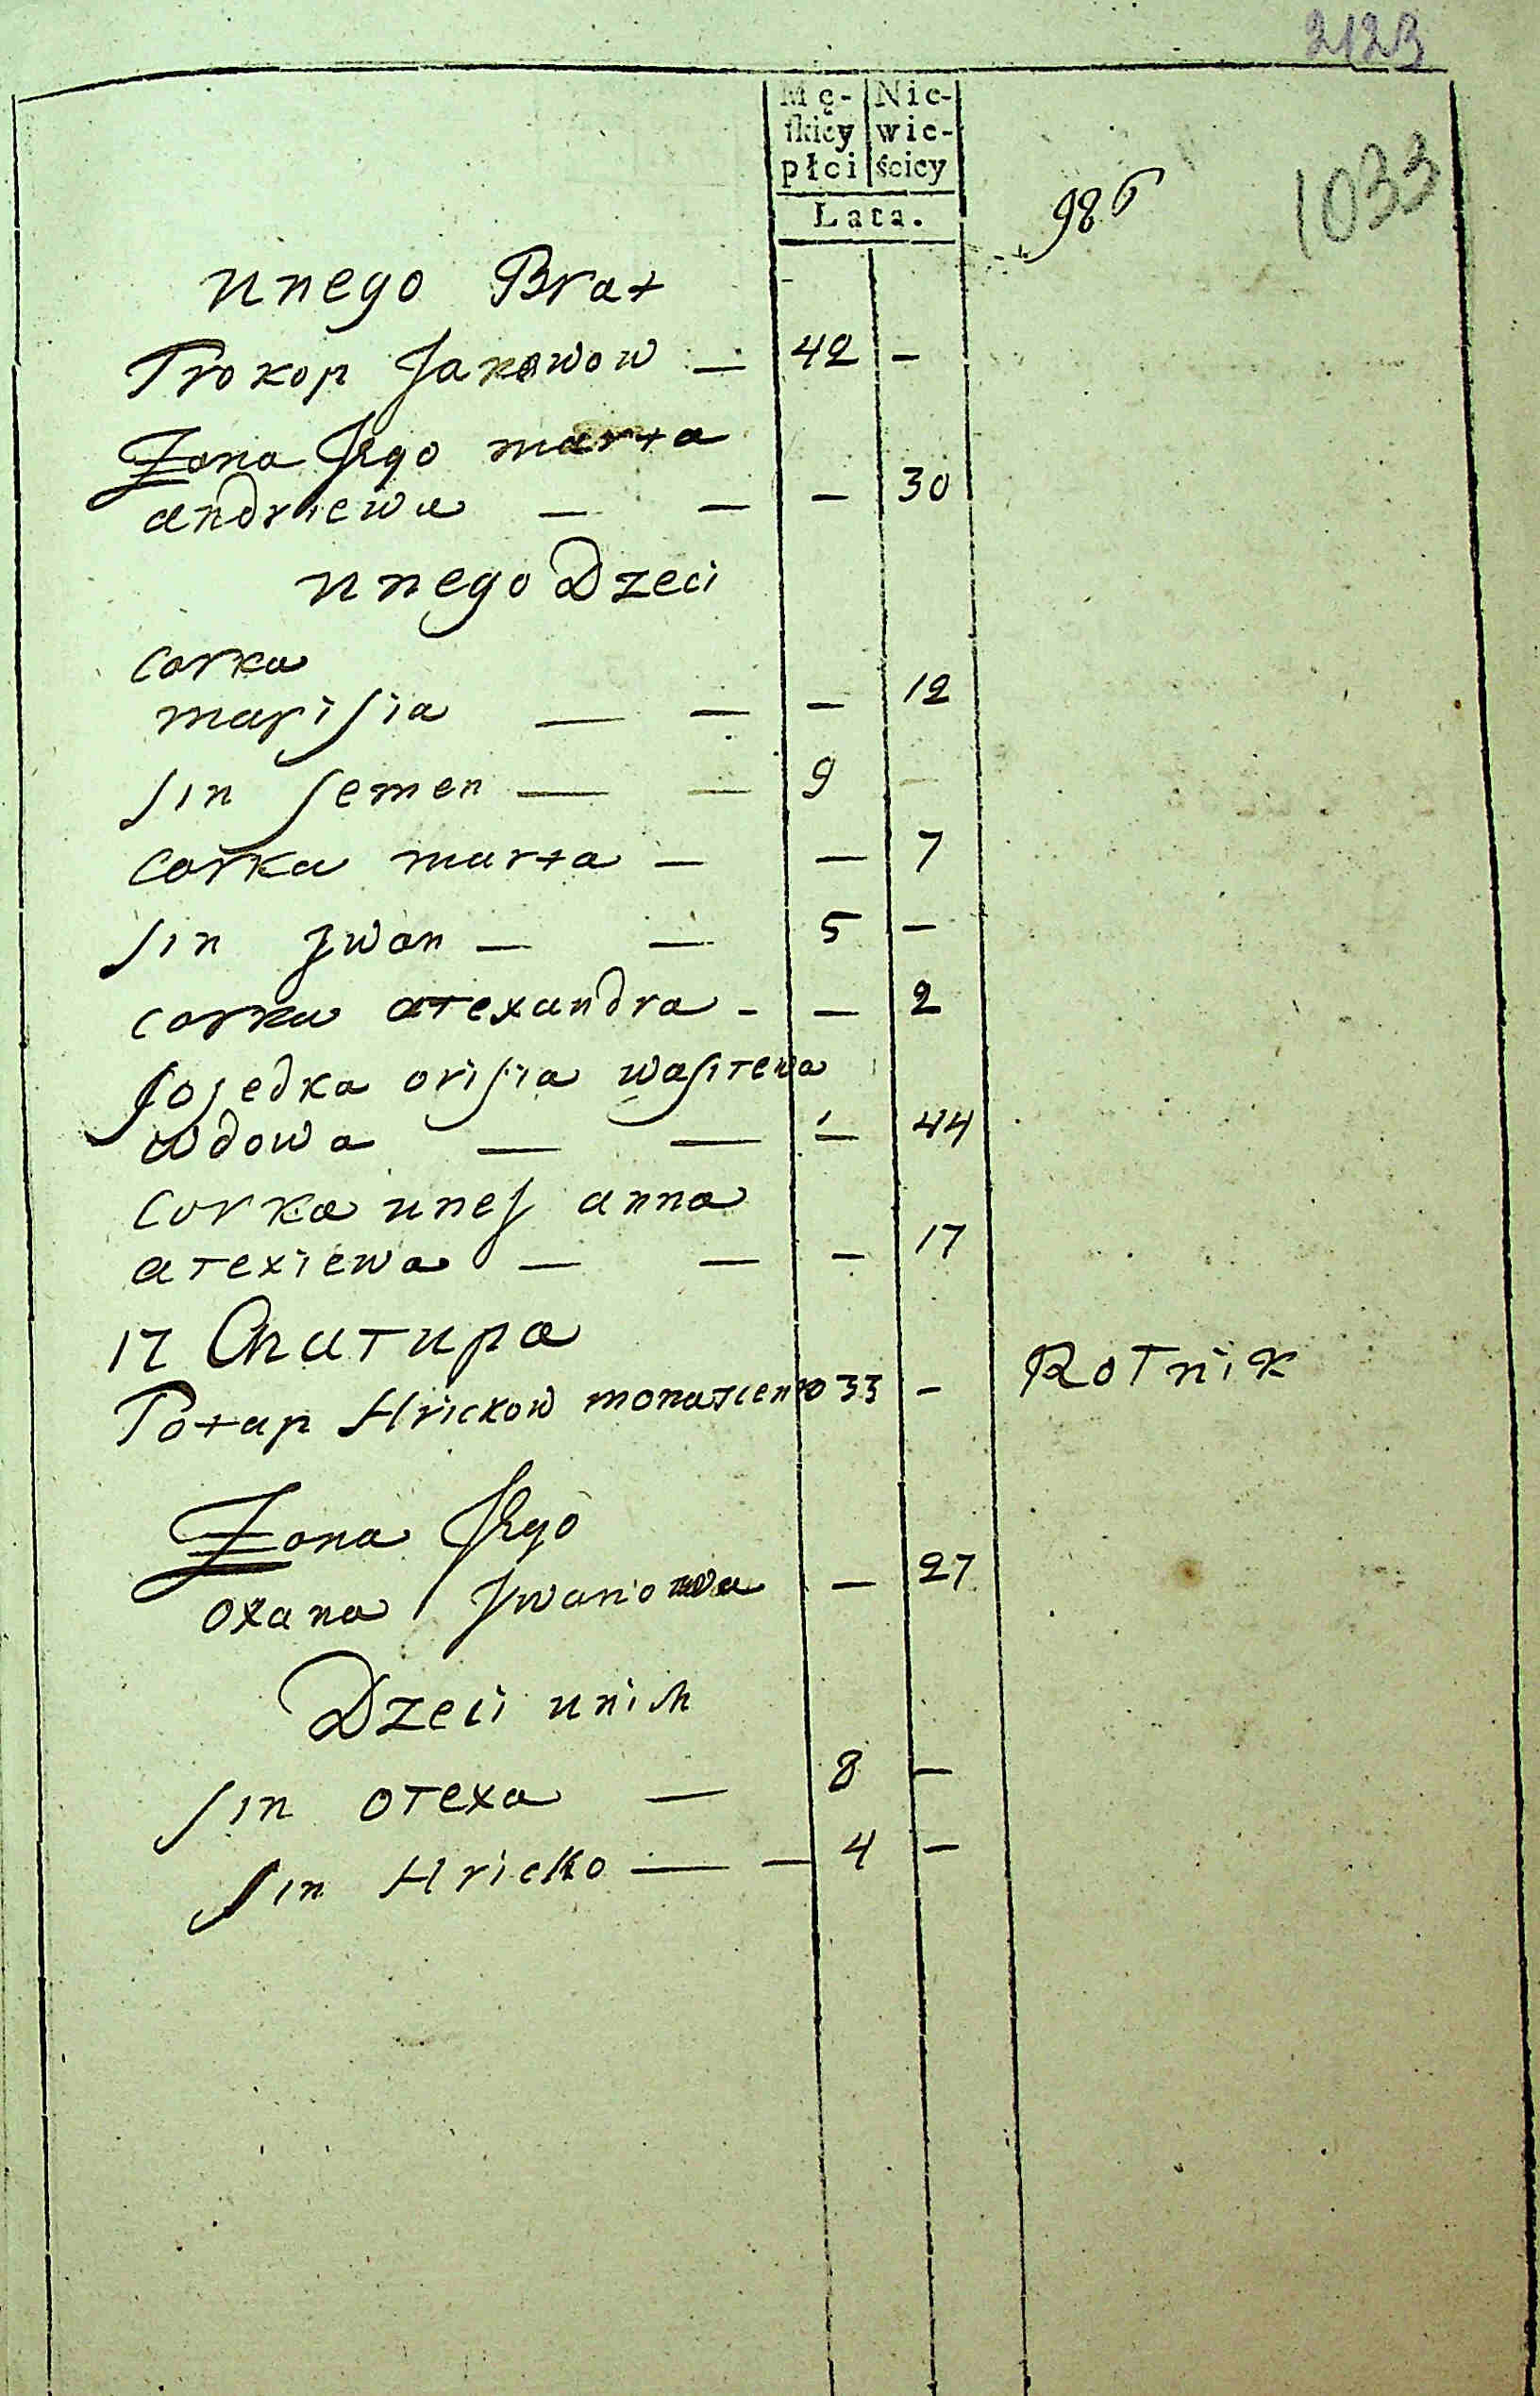 2123
Mę- Nie-
ſkiey wie-
płci ściey
Lata.
986 1033
unego Brat
Prokop Jakowow — 42 —
Żona Jego marta
andriewa — — — 30
unego Dzeci
corka
marisia — — — 12
sin semen — — 9 —
corka marta — — 7
sin Jwan — — 5 —
corka alexandra - — 2
sosedka orisia wasilewa
wdowa — — — 44
corka unej anna
alexiewa — — — 17
17 Chalupa
Potap Hrickow 33 — Rolnik
Żona Jego
oxana Jwanowa — 27
Dzeci unich
sin olexa — 8 —
sin Hricko — — 4 —